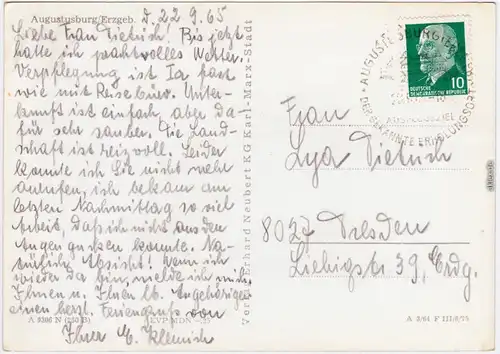 Augustusburg/Erzgeb.
d. 22.9.65
Liebe Frau Dietrich! Bis jetzt
hatte ich prachtvolles Wetter.
Verpflegung ist Ia fast
wie mit Reisebüro. Unter-
kunft ist einfach, aber da-
für sehr sauber. Die Land-
schaft ist reizvoll. Leider
konnte ich Sie nicht mehr
anrufen, ich bekam am
letzten Nachmittag so viel
Arbeit, daß ich nicht aus den
Augen gucken konnte. Na-
türlich Absicht! Wenn ich
wieder da bin, melde ich mich.
Ihnen u. Ihren lb. Angehörigen
einen herzl. Feriengruß von
Ihrer E. Klemich
Verlag Erhard Neubert KG Karl-Marx-Stadt
AUGUSTUSBURG
10
DEUTSCHE
DEMOKRATISCHE REPUBLIK
Frau
Lya Dietrich
8027 Dresden
Liebigstr 39, Erdg.
EVP MDN
A 3/64 F III-6/75